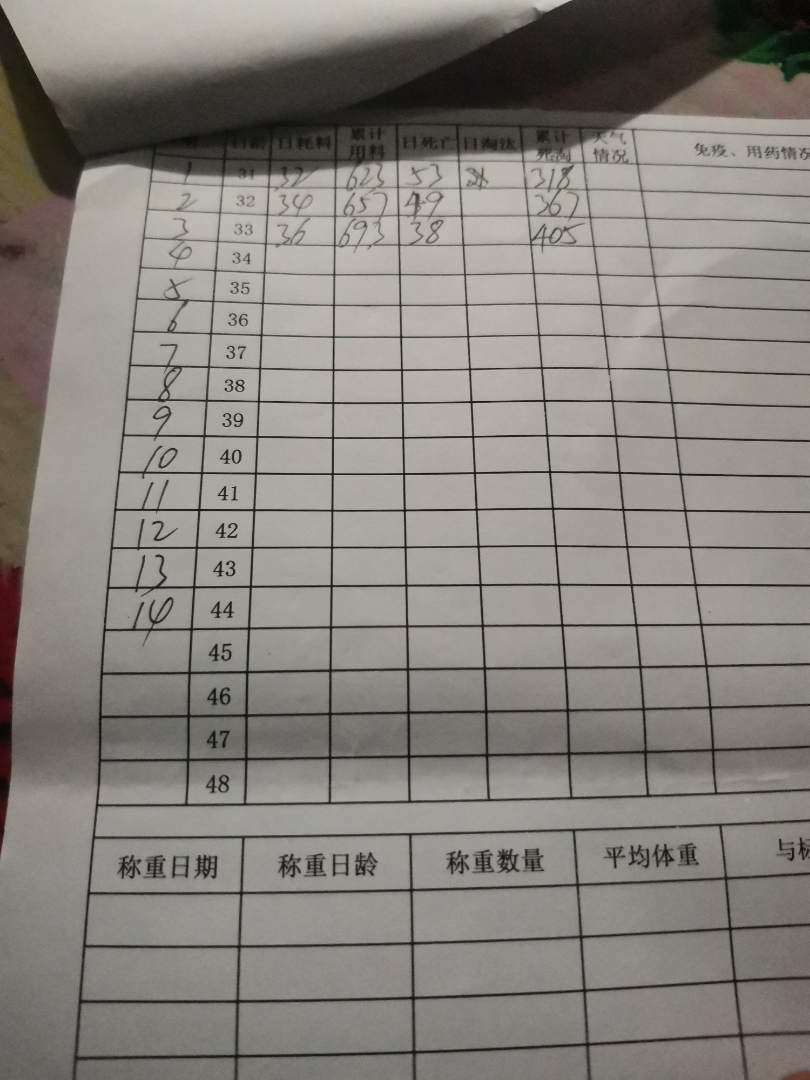 日龄 日耗料 累计用料 日死亡 日淘汰 累计死淘 天气情况 免疫、用药情况
1 31 32 623 53 318
2 32 34 657 49 367
3 33 36 693 38 405
4 34
5 35
6 36
7 37
8 38
9 39
10 40
11 41
12 42
13 43
14 44
45
46
47
48
称重日期 称重日龄 称重数量 平均体重 与标